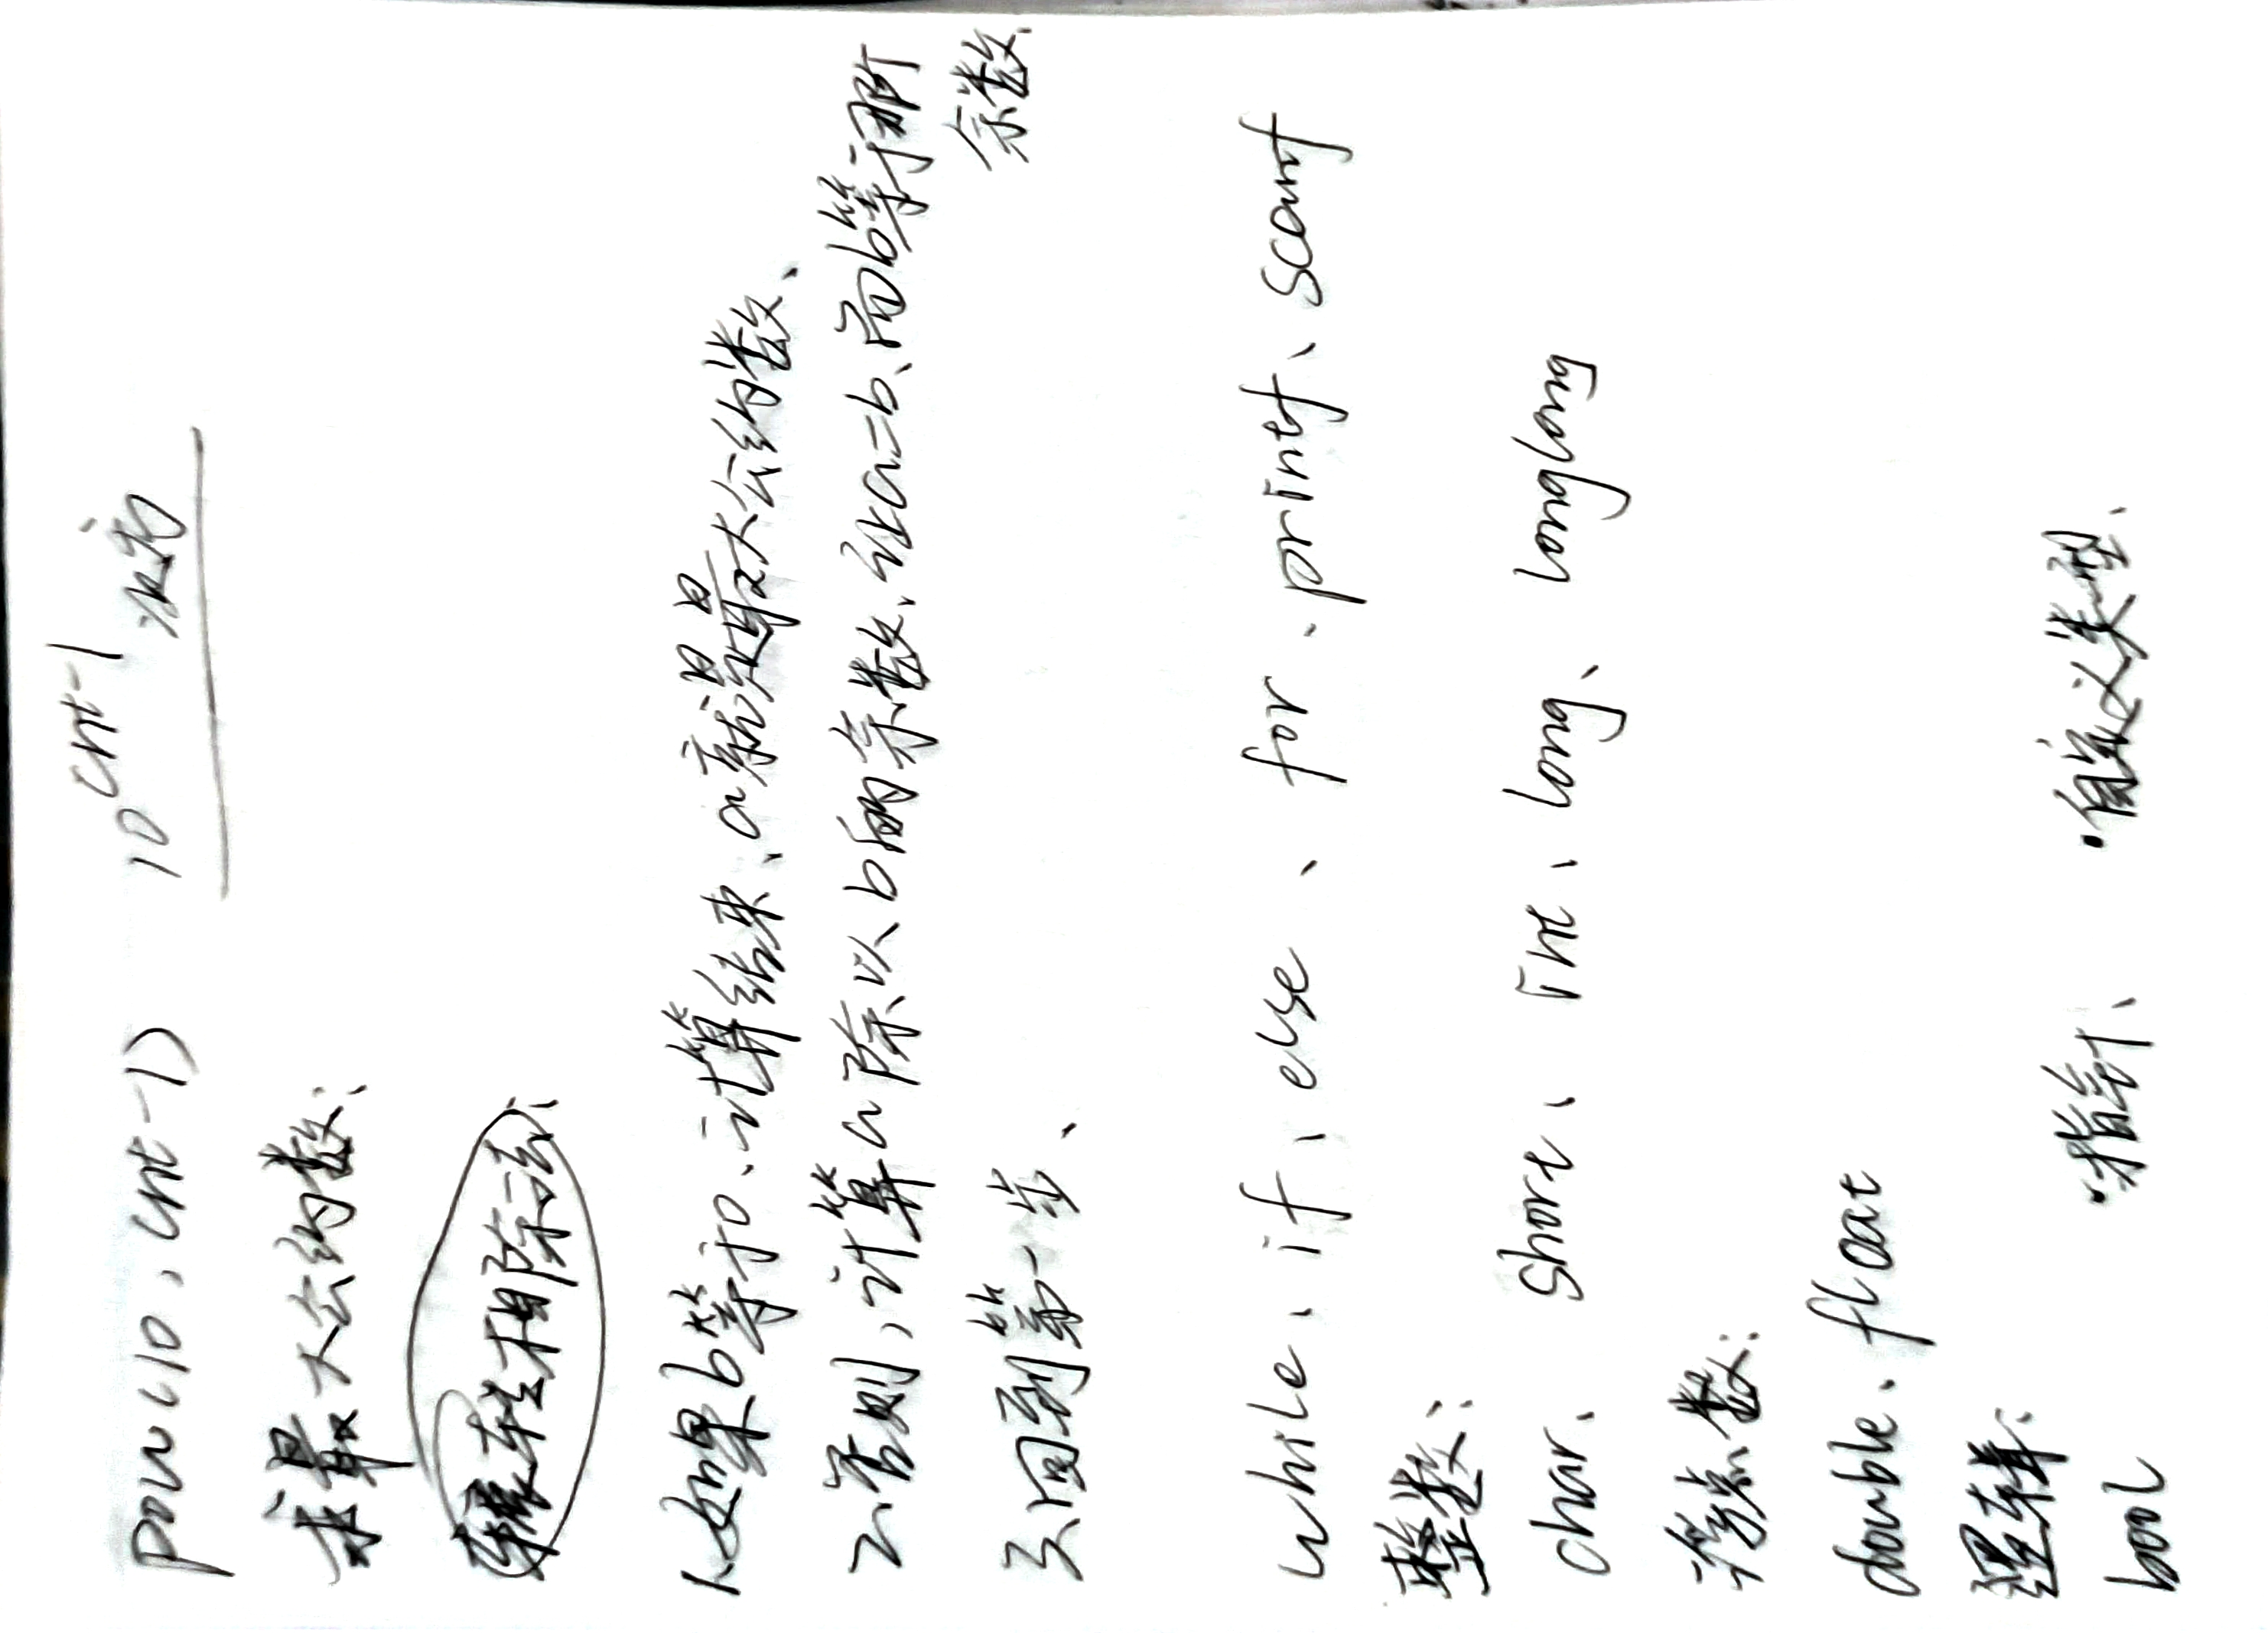 pow(10, cnt-1) 10^cnt-1 次方
求最大公约数:
辗转相除法、
1、如果b等于0、计算结束、a就是最大公约数、
2、否则, 计算a除以b的余数、让a=b、而b等于那余数、
3、回到第一步、
while、if、else、for、printf、scanf
整数:
char、short、int、long、longlong
浮点数:
double、float
逻辑:
bool ·指针、 ·自定义类型、